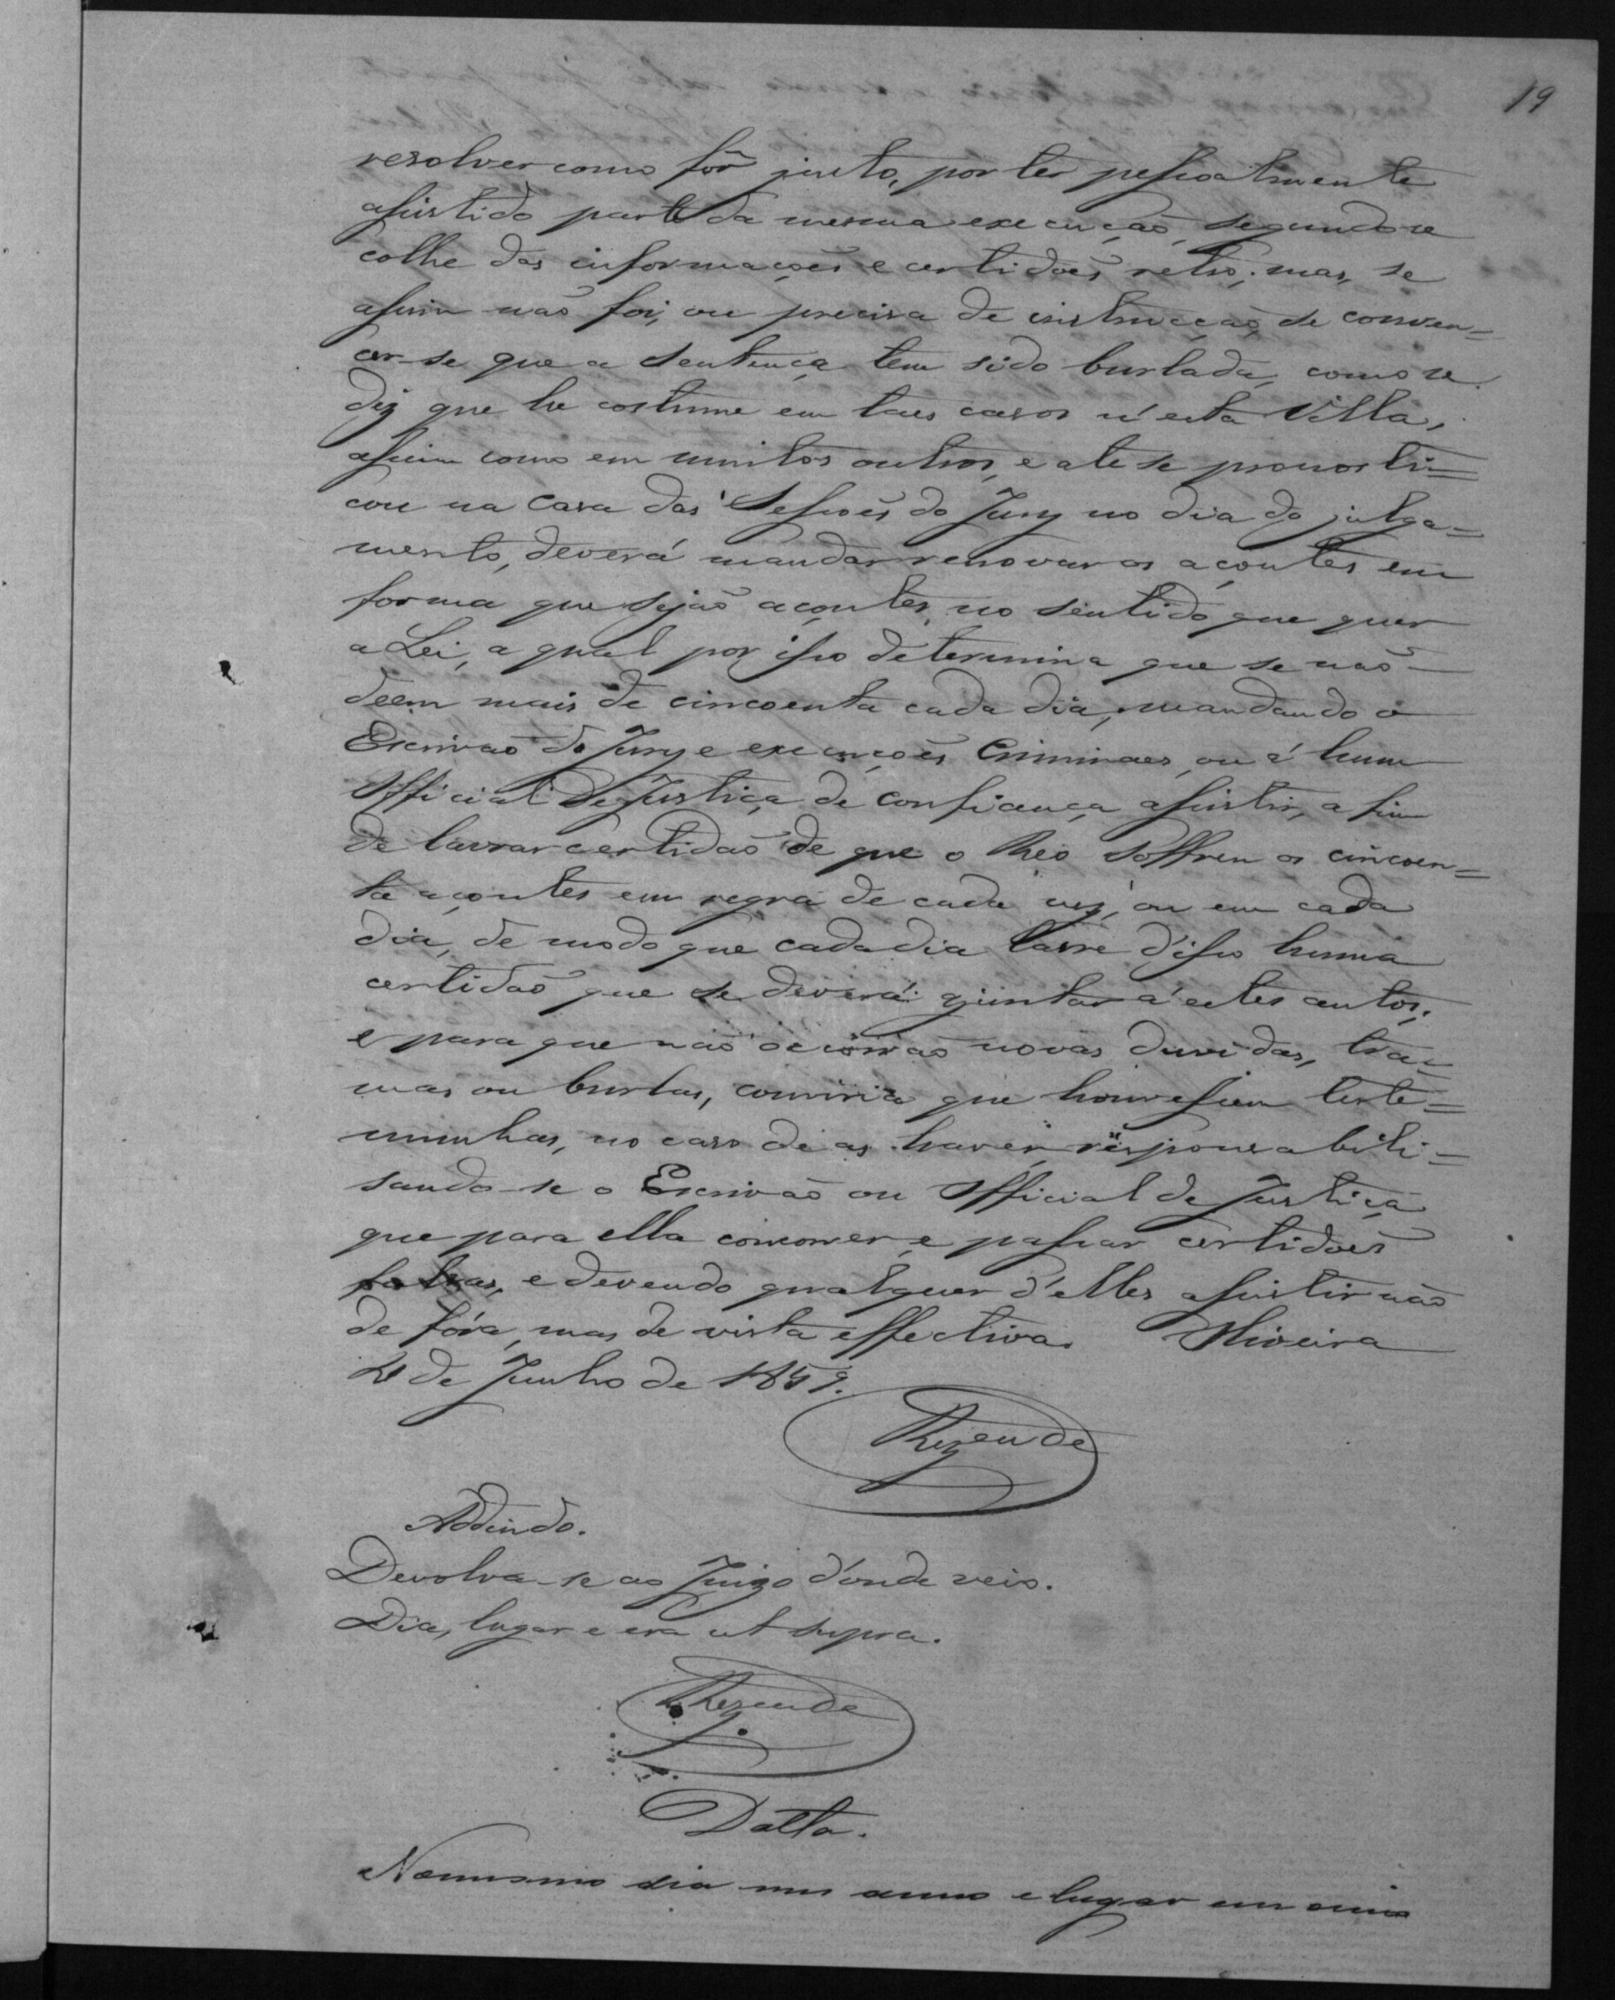 19
resolver como fôr justo, por ter pessoalmente
assistido parte da mesma execução, segundo se
colhe das informações e certidões retro; mas, se
assim não foi, ou precisa de instrucção, de conven=
cer-se que a sentença tem sido burlada, como se
diz que he costume em taes casos n'esta Villa,
assim como em muitos outros, e até se pronosti=
cou na Casa das Sessões do Jury no dia do julga=
mento, deverá mandar renovar os açoutes em
forma que sejão açoutes, no sentido que quer
a Lei, a qual por isso determina que se não
dêem mais de cincoenta cada dia, mandando o
Escrivão do Jury e execuções Criminaes, ou á hum
Official de Justiça de confiança assistir, a fim
de lavrar certidão de que o Reo soffreu os cincoen=
ta açoutes em regra de cada vez, ou em cada
dia, de modo que cada dia lavre d'isso huma
certidão que se deverá ajuntar a estes autos;
e para que não occorrão novas duvidas, tra=
mas ou burlas, conviria que houvessem teste=
munhas, no caso de as haver, responsabili=
sando-se o Escrivão ou Official de Justiça
que para ella concorrer e passar certidões
falsas, e devendo qualquer d'elles assistir não
de fóra, mas de vista effectiva. Oliveira
21 de Junho de 1859.
Rezende
Addindo.
Devolva-se ao Juizo d'onde veio.
Dia, lugar e era ut supra.
Rezende
Datta.
No mesmo dia mes anno e lugar em meu